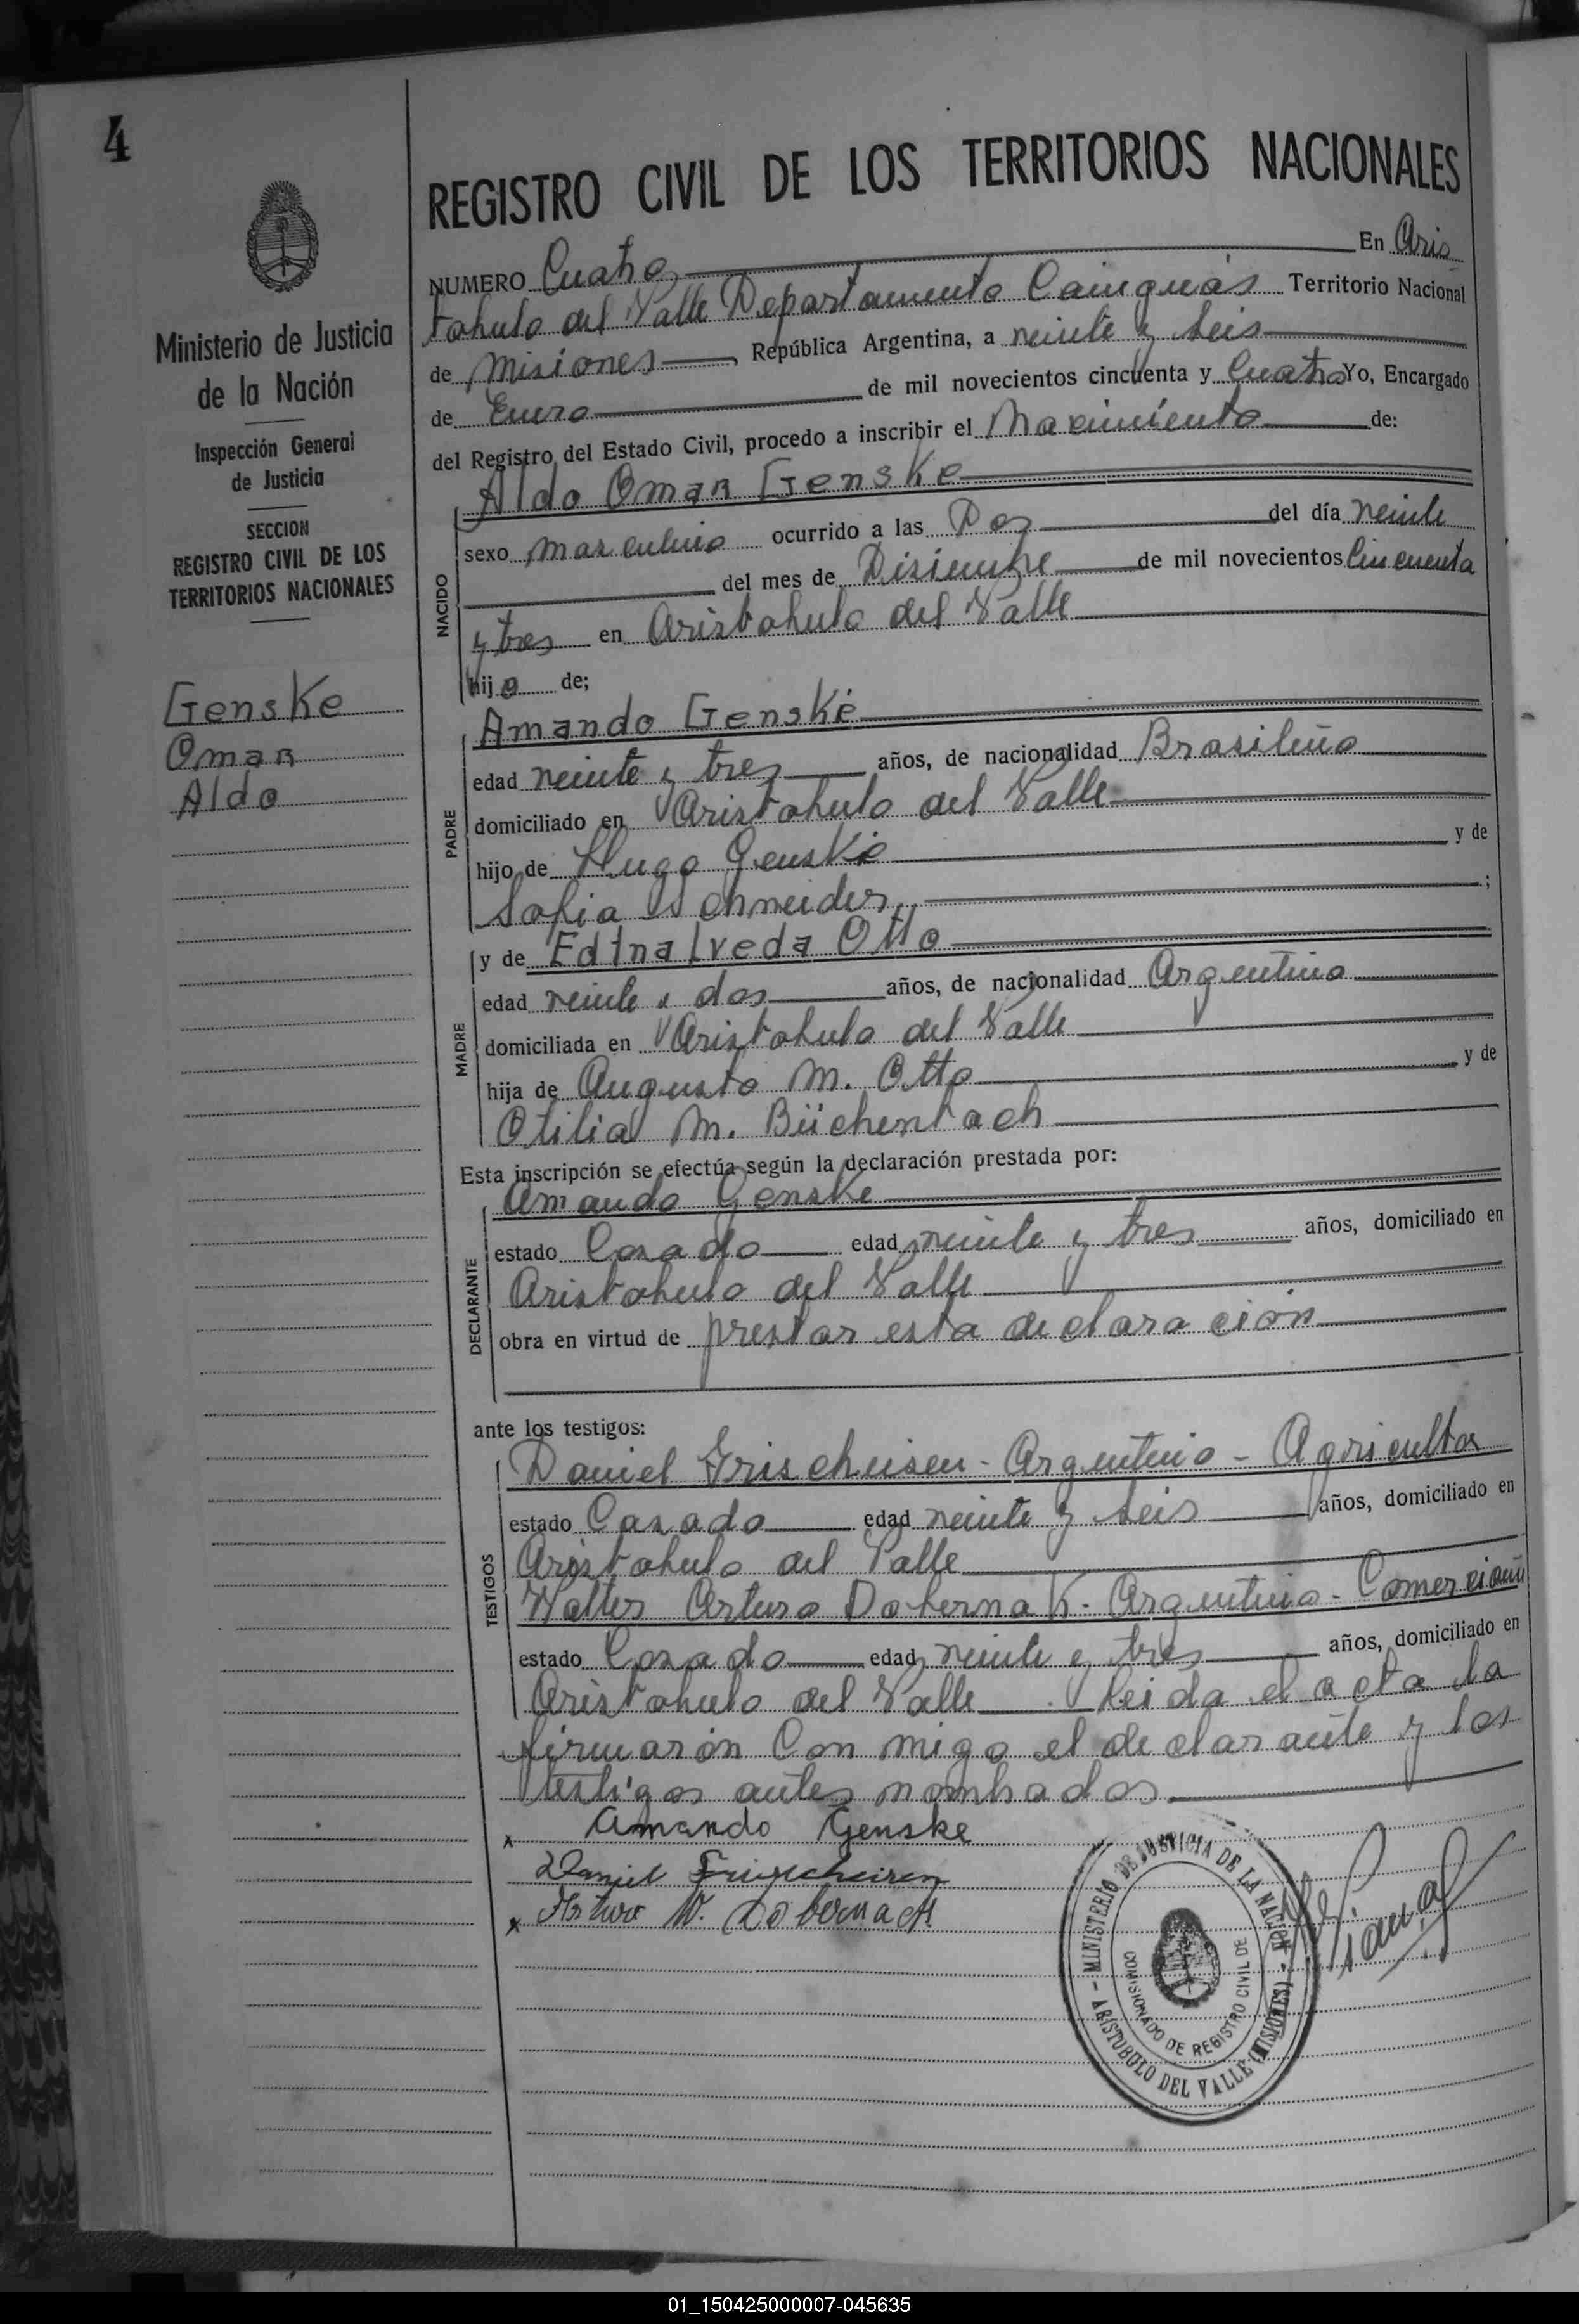 4
REGISTRO CIVIL DE LOS TERRITORIOS NACIONALES
Ministerio de Justicia
de la Nación
Inspección General
de Justicia
SECCION
REGISTRO CIVIL DE LOS
TERRITORIOS NACIONALES
Genske
Omar
Aldo
NUMERO Cuatro En Aris
tobulo del Valle Departamento Cainguás Territorio Nacional
de Misiones, República Argentina, a veinte y seis
de Enero de mil novecientos cincuenta y Cuatro Yo, Encargado
del Registro del Estado Civil, procedo a inscribir el Nacimiento de:
Aldo Omar Genske
NACIDO
sexo masculino ocurrido a las Dos del día veinte
del mes de Disiembre de mil novecientos Cincuenta
y tres en Aristobulo del Valle
hijo de;
PADRE
Amando Genske
edad veinte y tres años, de nacionalidad Brasileño
domiciliado en Aristobulo del Valle
hijo de Hugo Genske y de
Sofia Schneider ;
MADRE
y de Edina Iveda Otto
edad veinte y dos años, de nacionalidad Argentina
domiciliada en Aristobulo del Valle
hija de Augusto M. Otto y de
Otilia M. Büchenbach
Esta inscripción se efectúa según la declaración prestada por:
DECLARANTE
Amando Genske
estado Casado edad veinte y tres años, domiciliado en
Aristobulo del Valle
obra en virtud de prestar esta declaración
ante los testigos:
TESTIGOS
Daniel Frischeisen - Argentino - Agricultor
estado Casado edad veinte y seis años, domiciliado en
Aristobulo del Valle
Walter Arturo Dobernak - Argentino - Comerciante
estado Casado edad veinte y tres años, domiciliado en
Aristobulo del Valle Leida el acta la
firmarón Con migo el declarante y los
testigos antes nombrados
x Amando Genske
Daniel Frischeisen
x Arturo W. Dobernack
MINISTERIO DE JUSTICIA DE LA NACION
ARISTOBULO DEL VALLE (MISIONES)
COMISIONADO DE REGISTRO CIVIL DE
01_150425000007-045635